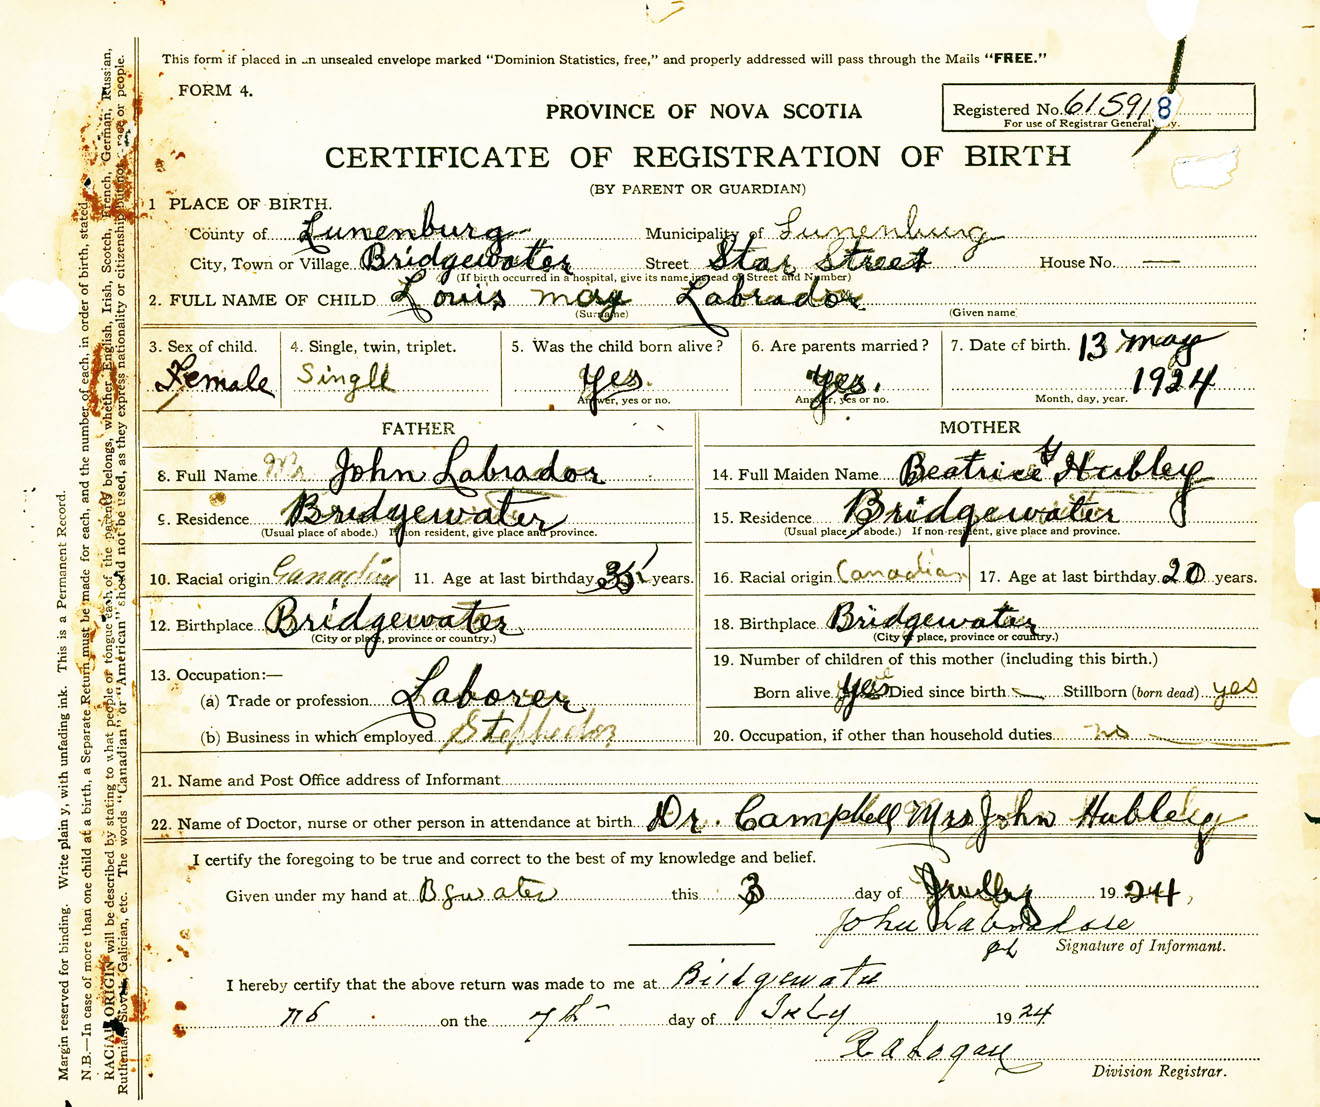 This form if placed in an unsealed envelope marked "Dominion Statistics, free," and properly addressed will pass through the Mails "FREE."
FORM 4.
PROVINCE OF NOVA SCOTIA
Registered No. 615918
For use of Registrar General
CERTIFICATE OF REGISTRATION OF BIRTH
(BY PARENT OR GUARDIAN)
1 PLACE OF BIRTH.
County of Lunenburg Municipality of Lunenburg
City, Town or Village Bridgewater Street Star Street House No. —
(If birth occurred in a hospital, give its name instead of Street and Number)
2. FULL NAME OF CHILD Louis may Labrador
(Surname) (Given name)
3. Sex of child. 4. Single, twin, triplet. 5. Was the child born alive? 6. Are parents married? 7. Date of birth. 13 may
Female Single Yes. Yes. 1924
Answer, yes or no. Answer, yes or no. Month, day, year.
FATHER MOTHER
8. Full Name Mr John Labrador 14. Full Maiden Name Beatrice Hubley
9. Residence Bridgewater 15. Residence Bridgewater
(Usual place of abode.) If non-resident, give place and province. (Usual place of abode.) If non-resident, give place and province.
10. Racial origin Canadian 11. Age at last birthday 35 years. 16. Racial origin Canadian 17. Age at last birthday. 20 years.
12. Birthplace Bridgewater 18. Birthplace Bridgewater
(City or place, province or country.) (City or place, province or country.)
13. Occupation:— 19. Number of children of this mother (including this birth.)
(a) Trade or profession Laborer Born alive yes Died since birth — Stillborn (born dead) yes
(b) Business in which employed 20. Occupation, if other than household duties no
21. Name and Post Office address of Informant
22. Name of Doctor, nurse or other person in attendance at birth Dr. Campbell Mrs John Hubley
I certify the foregoing to be true and correct to the best of my knowledge and belief.
Given under my hand at Bgwater this 3 day of July 1924,
John Labradore
Signature of Informant.
I hereby certify that the above return was made to me at Bridgewater
NS on the 7th day of July 1924
Division Registrar.
Margin reserved for binding. Write plainly, with unfading ink. This is a Permanent Record.
N.B.—In case of more than one child at a birth, a Separate Return must be made for each, and the number of each, in order of birth, stated.
RACIAL ORIGIN will be described by stating to what people or tongue each of the parents belongs, whether English, Irish, Scotch, French, German, Russian,
Ruthenian, Slovak, Galician, etc. The words "Canadian" or "American" should not be used, as they express nationality or citizenship but not race or people.